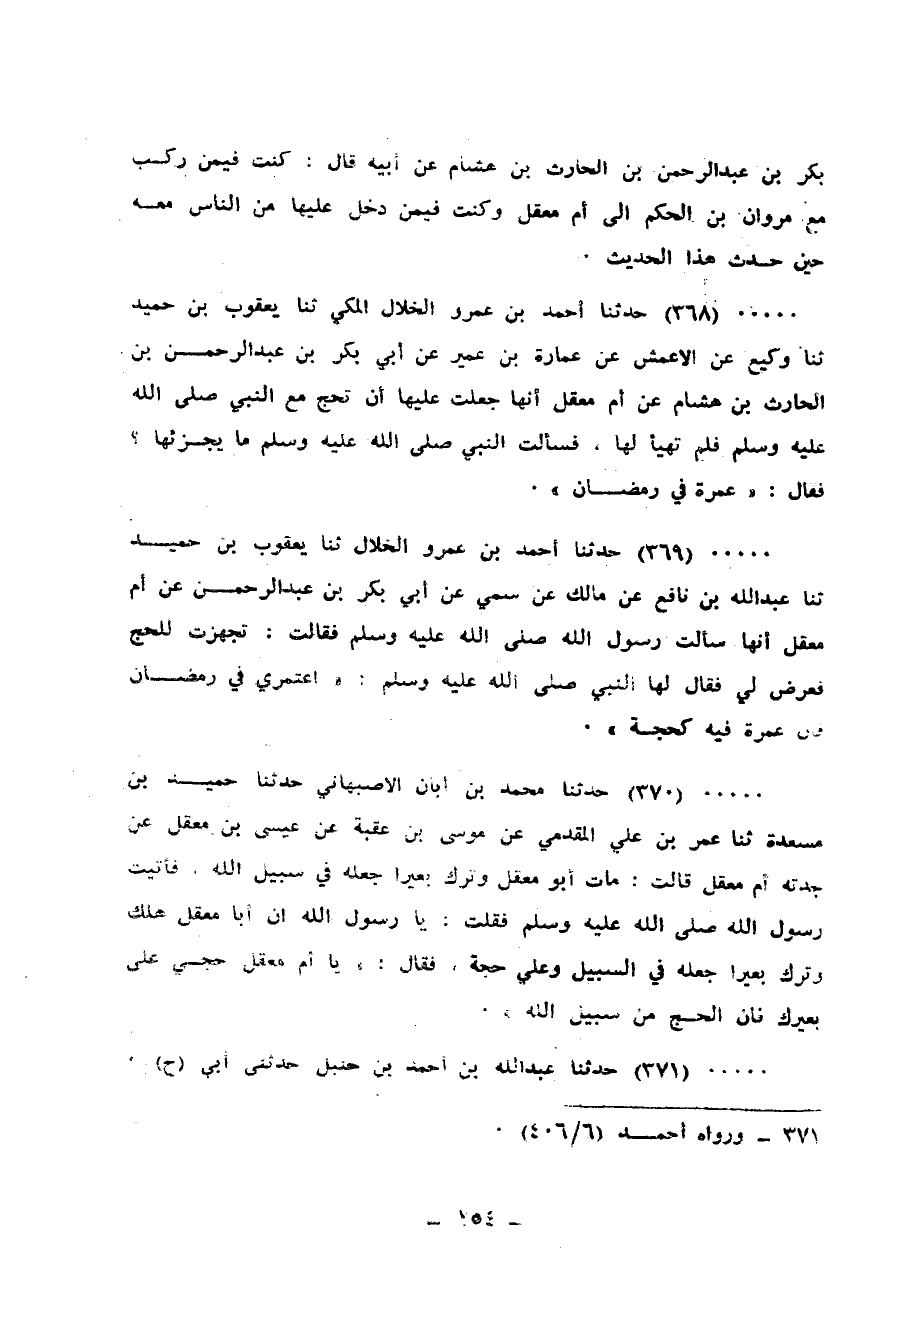 بكر بن عبدالرحمن بن الحارث بن هشام عن أبيه قال : كنت فيمن ركب
مع مروان بن الحكم الى أم معقل وكنت فيمن دخل عليها من الناس معه
حين حدث هذا الحديث ٠
٠٠٠٠٠ (٣٦٨) حدثنا أحمد بن عمرو الخلال المكي ثنا يعقوب بن حميد
ثنا وكيع عن الاعمش عن عمارة بن عمير عن أبي بكر بن عبدالرحمن بن
الحارث بن هشام عن أم معقل أنها جعلت عليها أن تحج مع النبي صلى الله
عليه وسلم فلم تهيأ لها ، فسألت النبي صلى الله عليه وسلم ما يجزئها ؟
فقال : « عمرة في رمضان » ٠
٠٠٠٠٠ (٣٦٩) حدثنا أحمد بن عمرو الخلال ثنا يعقوب بن حميد
ثنا عبدالله بن نافع عن مالك عن سمي عن أبي بكر بن عبدالرحمن عن أم
معقل أنها سألت رسول الله صلى الله عليه وسلم فقالت : تجهزت للحج
فعرض لي فقال لها النبي صلى الله عليه وسلم : « اعتمري في رمضان
عمرة فيه كحجة » ٠
٠٠٠٠٠ (٣٧٠) حدثنا محمد بن أبان الاصبهاني حدثنا حميد بن
مسعدة ثنا عمر بن علي المقدمي عن موسى بن عقبة عن عيسى بن معقل عن
جدته أم معقل قالت : مات أبو معقل وترك بعيرا جعله في سبيل الله ، فأتيت
رسول الله صلى الله عليه وسلم فقلت : يا رسول الله ان أبا معقل هلك
وترك بعيرا جعله في السبيل وعلي حجة ، فقال : « يا أم معقل حجي على
بعيرك فان الحج من سبيل الله » ٠
٠٠٠٠٠ (٣٧١) حدثنا عبدالله بن أحمد بن حنبل حدثني أبي (ح) ٠
٣٧١ ــ ورواه أحمد (٤٠٦/٦) ٠
ــ ١٥٤ ــ